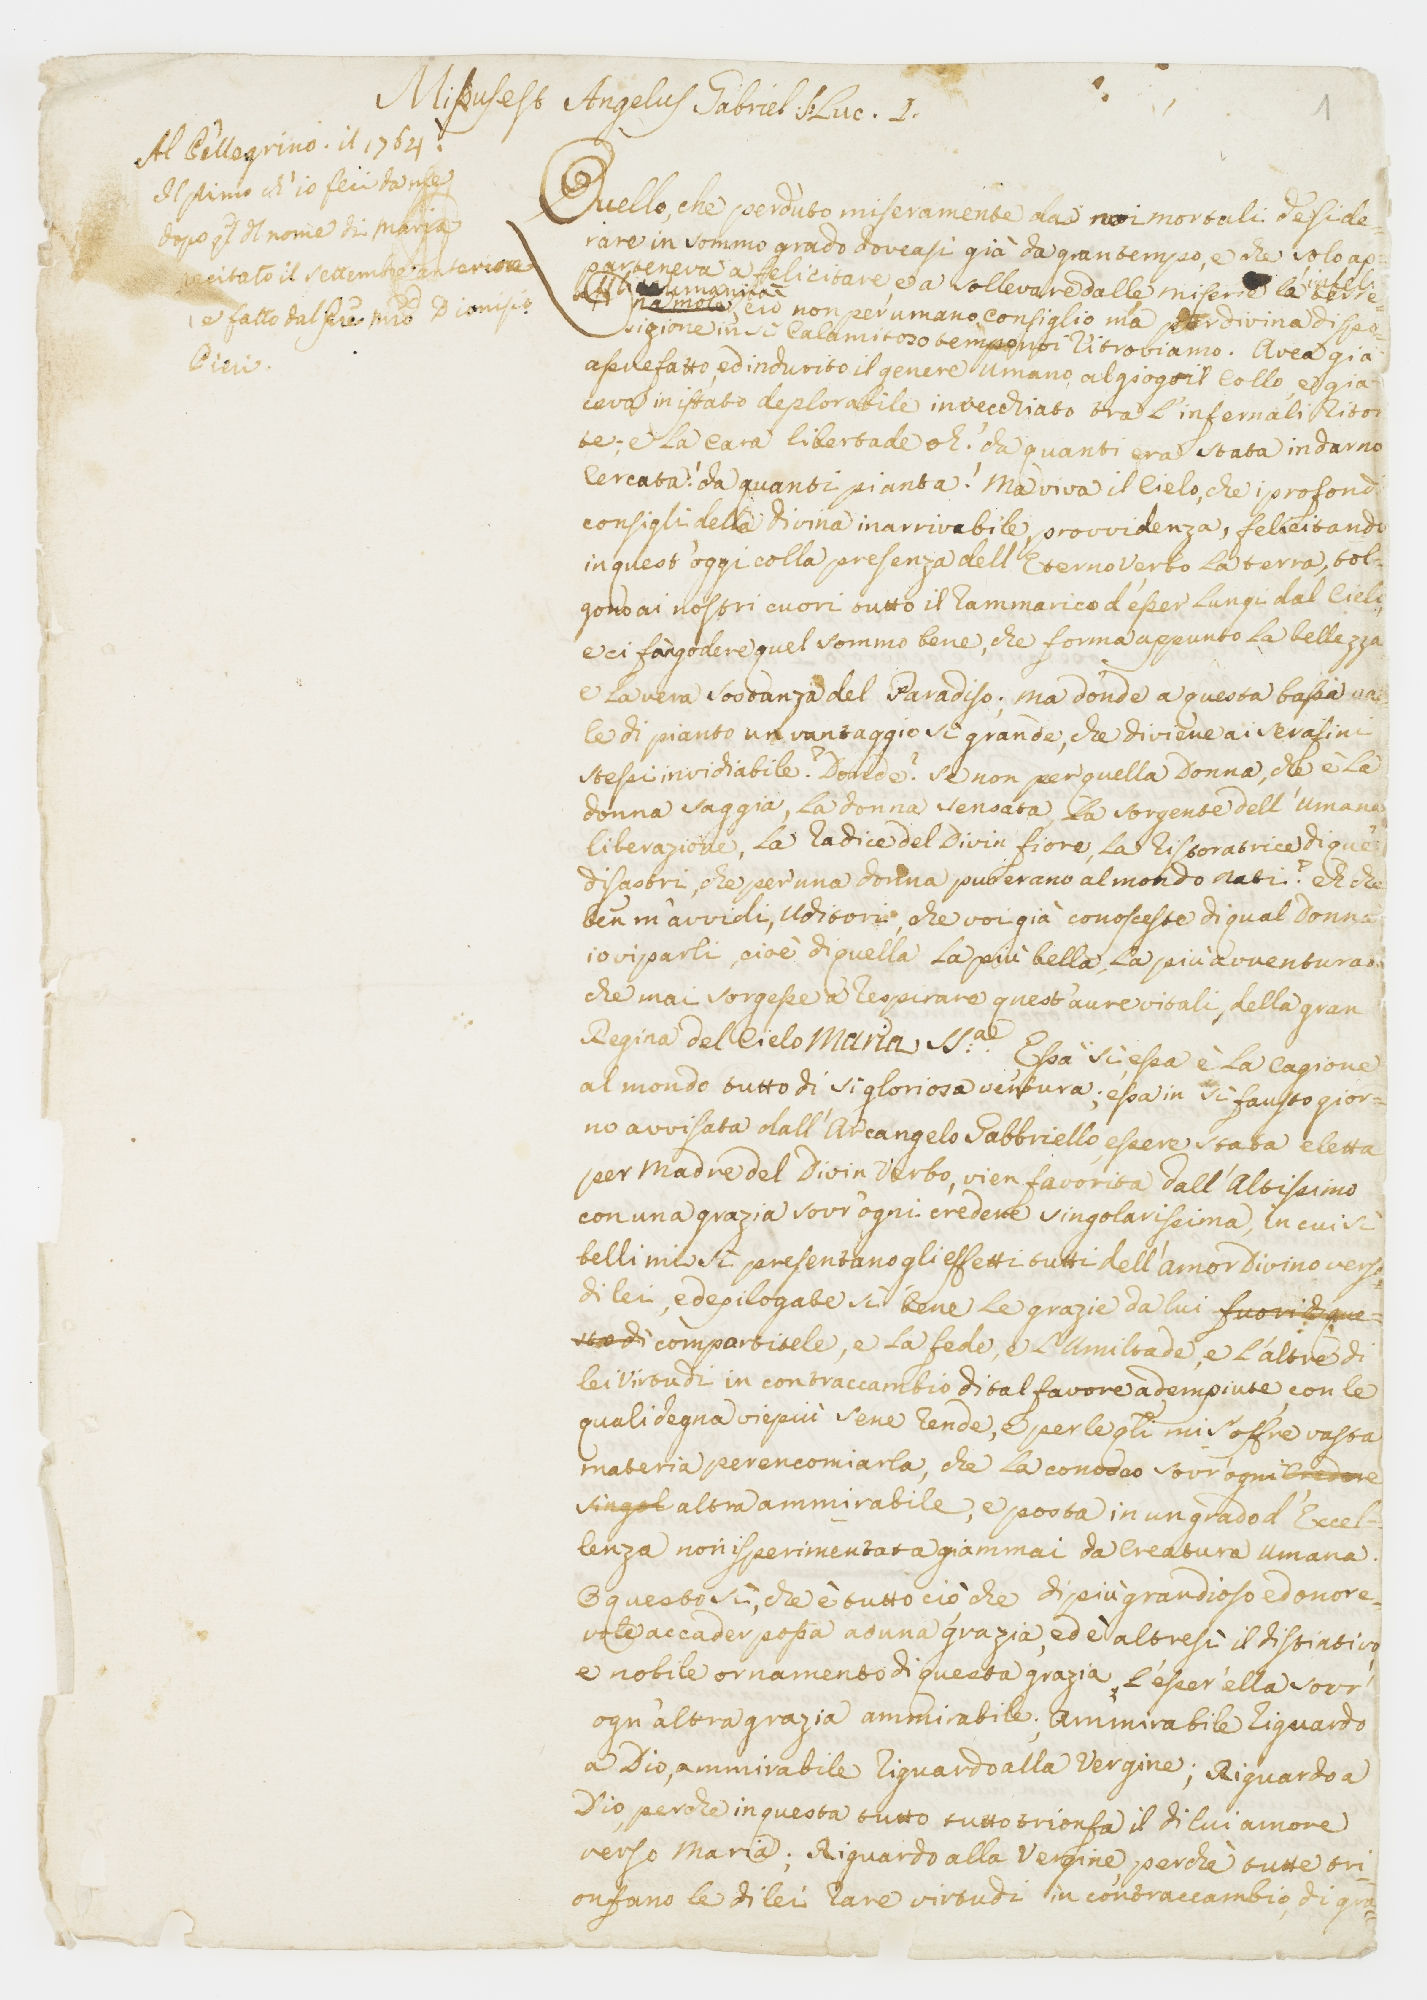 Missus est Angelus Gabriel. S. Luc. 1.
1
Al Pellegrino. il 1764.
Il primo ch'io feci da me
dopo q.l d'l nome di Maria
recitato il settembre anteriore
e fatto dal
Dionisio
Pieri.
Quello, che perduto miseramente da noi mortali deside=
rare in sommo grado doveasi già da gran tempo, e che solo ap=
parteneva a felicitare, e a sollevare dalle miserie la
umanità, ciò non per umano consiglio ma per divina dispo=
sizione in sì calamitoso tempo noi ritroviamo. Avea già
assuefatto, ed indurito il genere umano al giogo il collo, e gia=
ceva in istato deplorabile invecchiato tra l'infernali ritor
te; e la cara libertade oh! da quanti era stata indarno
cercata! da quanti pianta! Ma viva il Cielo, che i profondi
consigli della divina inarrivabile provvidenza, felicitando
in quest'oggi colla presenza dell'Eterno Verbo la terra, tol=
gono ai nostri cuori tutto il rammarico d'esser lungi dal Cielo,
e ci fan godere quel sommo bene, che forma appunto la bellezza
e la vera sostanza del Paradiso; ma donde a questa bassa va
le di pianto un vantaggio sì grande, che diviene ai serafini
stessi invidiabile? Donde? se non per quella Donna, che è la
donna saggia, la donna sensata, la sorgente dell'umana
liberazione, la radice del Divin fiore, la ristoratrice di que'
disastri, che per una donna pur erano al mondo nati? Eh che
ben m'avvidi, Uditori, che voi già conosceste di qual Donna
io vi parli, cioè di quella la più bella, la più avventurosa
che mai sorgesse a respirare quest'aure vitali, della gran
Regina del Cielo Maria SS.ma. Essa sì, essa è la cagione
al mondo tutto di sì gloriosa ventura; essa in sì fausto gior=
no avvisata dall'Arcangelo Gabbriello essere stata eletta
per Madre del Divin Verbo, vien favorita dall'Altissimo
con una grazia sovr'ogni credere singolarissima, in cui sì
belli mi si presentano gli effetti tutti dell'amor Divino verso
di lei, ed epilogate sì bene le grazie da lui fuori di que=
sto dì compartitele, e la fede, e l'umiltade, e l'altre di
lei virtudi in contraccambio di tal favore adempiute, con le
quali degna viepiù sene rende, e per le q.li mi s'offre vasta
materia per encomiarla, che la conosco sovr'ogni credere
singol altra ammirabile, e posta in un grado d'Excel=
lenza non isperimentata giammai da Creatura umana.
E questo sì, che è tutto ciò che di più grandioso ed onore=
vole accader possa ad una grazia, ed è altresì il distintivo,
e nobile ornamento di questa grazia, l'esser ella sovr'
ogn'altra grazia ammirabile; Ammirabile riguardo
a Dio, ammirabile riguardo alla Vergine; Riguardo a
Dio, perchè in questa tutto tutto trionfa il di lui amore
verso Maria; Riguardo alla Vergine, perchè tutte tri
onfano le di lei rare virtudi in contraccambio di gra=